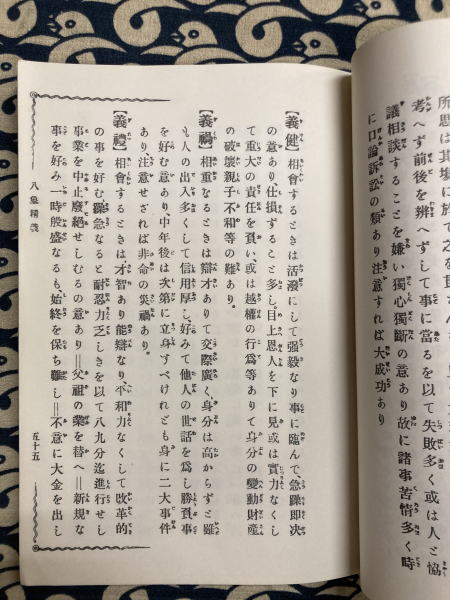 所思は其場に於て之を
考へず前後を辨へずして事に當るを以て失敗多く或は人と協
議相談することを嫌い獨心獨斷の意あり故に諸事苦情多く時
に口論訴訟の類あり注意すれば大成功あり
【義健】相會するときは活潑にして强毅なり事に臨んで急躁即次
の意あり、仕損ずること多し。目上恩人を下に見或は實力なくし
て重大の責任を負い、或は越權の行爲等ありて身分の變動財產
の破壞親子不和等の難あり。
【義禍】相重なるときは辯才ありて交際廣く、身分は高からずと雖
も人の出入多くして信用厚し、好みて他人の世話を爲し勝負事
を好む意あり、中年後は次第に立身すべけれども身に二大事件
あり、注意せざれば非命の災禍あり。
【義禮】相會するときは才智あり能辯なり、平和力なくして改革的
の事を好む躁急なると耐忍力乏しきを以て八九分迄進行せし
事業を中止廢絕せしむるの意あり‖父祖の業を替へ‖新規な
事を好み一時般盛なるも、始終を保ち難し‖不意に大金を出し
八象精義
五十五